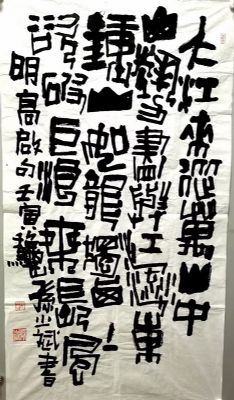 大江來從萬山中
山勢盡與江流東
鍾山如龍獨西上
欲破巨浪乘長風
明高啟句壬寅孫書